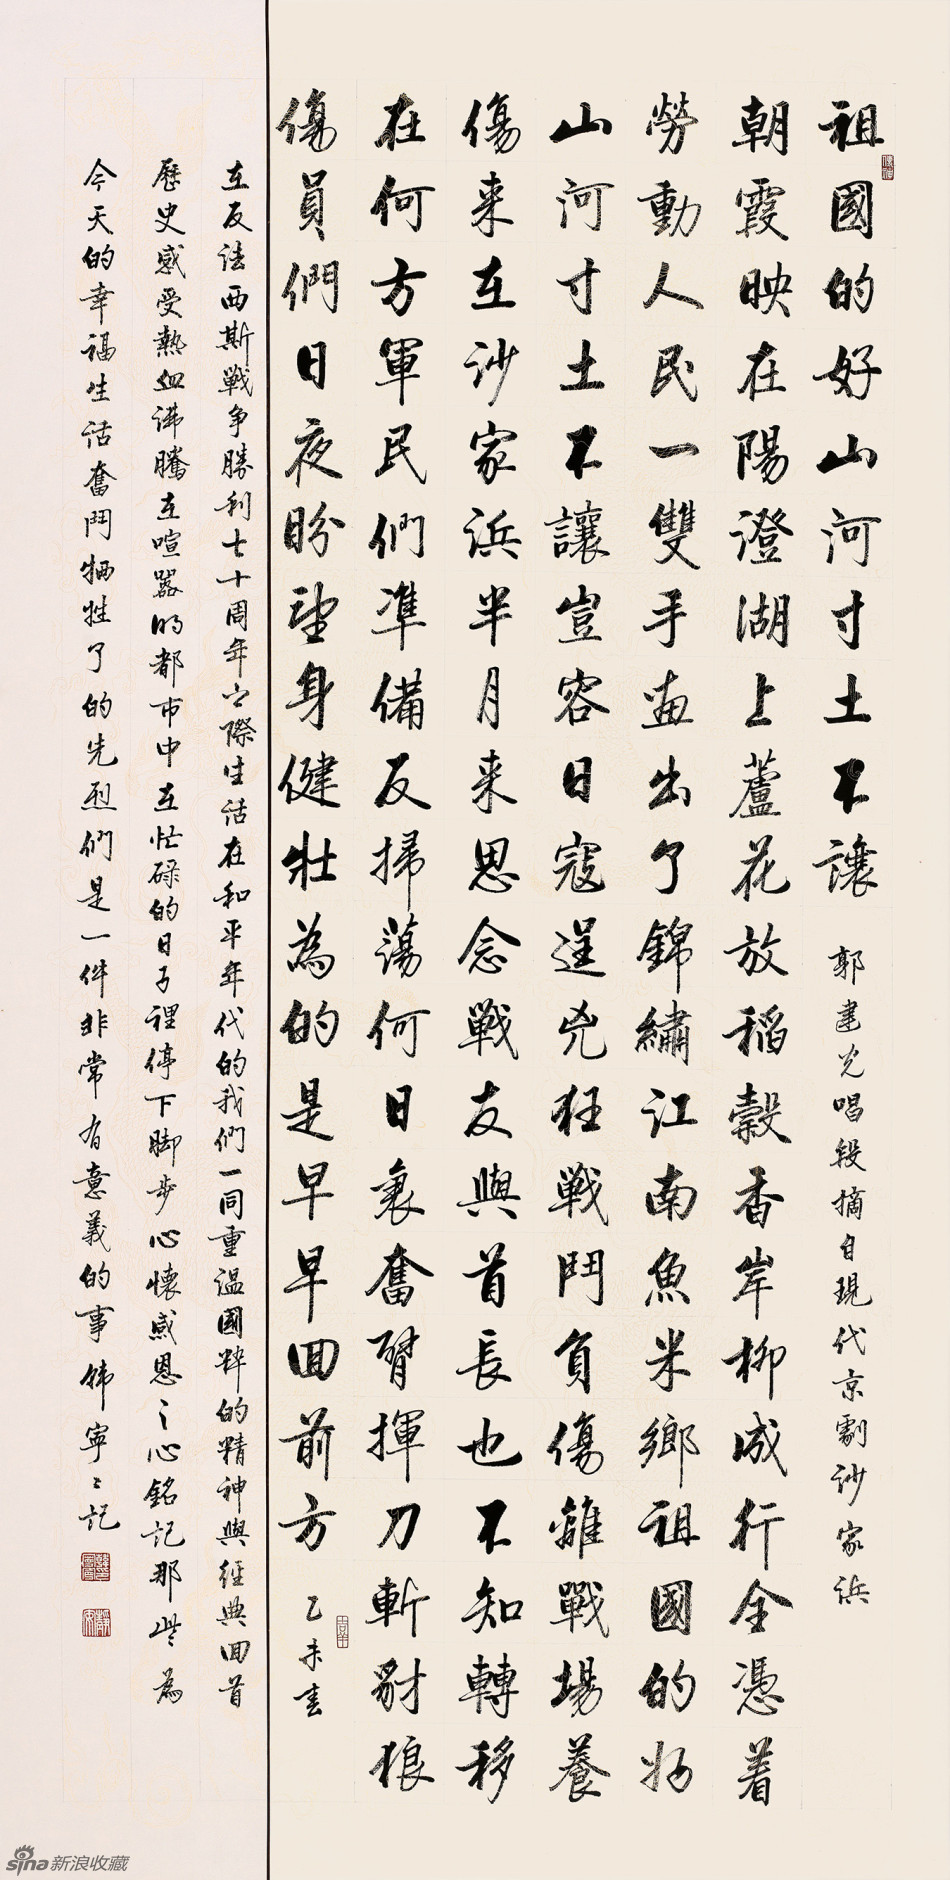 祖國的好山河寸土不讓 郭建光唱段摘自現代京劇沙家浜
朝霞映在陽澄湖上蘆花放稻穀香岸柳成行全憑着
勞動人民一雙手畫出了錦繡江南魚米鄉祖國的好
山河寸土不讓豈容日寇逞兇狂戰鬥負傷離戰場養
傷來在沙家浜半月來思念戰友與首長也不知轉移
在何方軍民們準備反掃蕩何日裏奮臂揮刀斬豺狼
傷員們日夜盼望身健壯為的是早早回前方 乙未春
在反法西斯戰爭勝利七十周年之際生活在和平年代的我們一同重溫國粹的精神與經典回首
歷史感受熱血沸騰在喧囂的都市中在忙碌的日子裡停下脚步心懷感恩之心銘記那些為
今天的幸福生活奮鬥犧牲了的先烈們是一件非常有意義的事韩寧寧記
sina新浪收藏